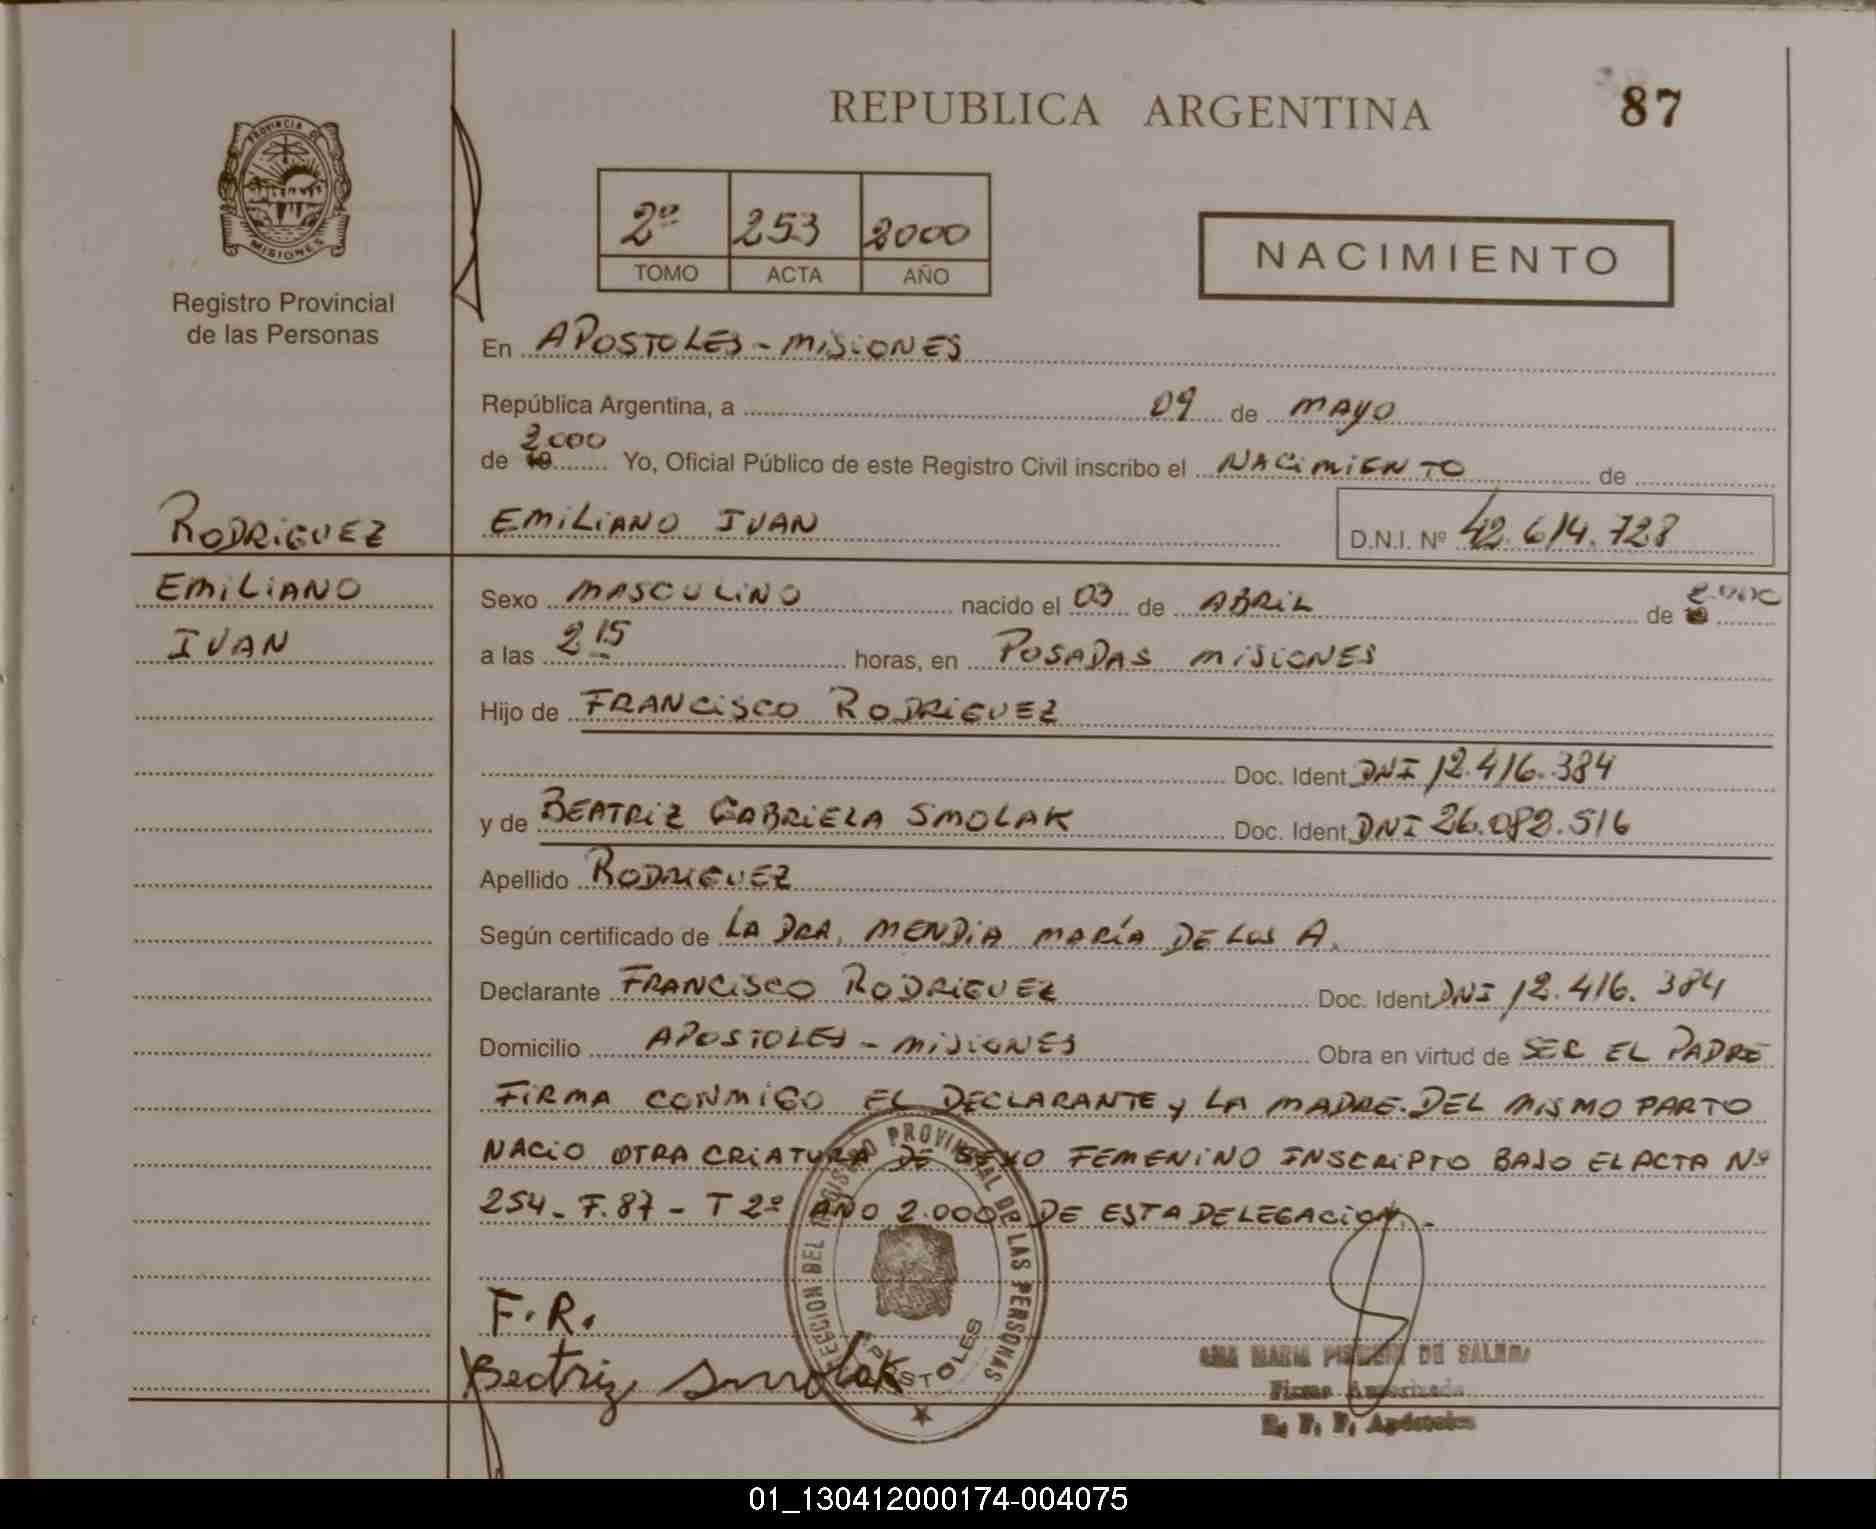 REPUBLICA ARGENTINA
87
PROVINCIA DE
MISIONES
Registro Provincial
de las Personas
2º 253 2000
TOMO ACTA AÑO
NACIMIENTO
En APOSTOLES - MISIONES
República Argentina, a 09 de MAYO
2000
de 19 Yo, Oficial Público de este Registro Civil inscribo el NACIMIENTO de
RODRIGUEZ
EMILIANO IVAN
D.N.I. Nº 42.614.728
EMILIANO
IVAN
Sexo MASCULINO nacido el 03 de ABRIL de 2.000
a las 2 15 horas, en POSADAS MISIONES
Hijo de FRANCISCO RODRIGUEZ
Doc. Ident. DNI 12.416.384
y de BEATRIZ GABRIELA SMOLAK Doc. Ident. DNI 26.082.516
Apellido RODRIGUEZ
Según certificado de LA DRA. MENDIA MARÍA DE LOS A.
Declarante FRANCISCO RODRIGUEZ Doc. Ident. DNI 12.416.384
Domicilio APOSTOLES - MISIONES Obra en virtud de SER EL PADRE
FIRMA CONMIGO EL DECLARANTE y LA MADRE. DEL MISMO PARTO
NACIO OTRA CRIATURA DE SEXO FEMENINO INSCRIPTO BAJO EL ACTA Nº
254 - F. 87 - T 2º AÑO 2.000 DE ESTA DELEGACION.-
DIRECCION DEL REGISTRO PROVINCIAL DE LAS PERSONAS
APOSTOLES
F.R.
Beatriz Smolak
MARIA DE
Firma Autorizada
Apóstoles
01_130412000174-004075